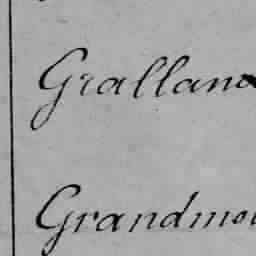 Gralland
Grandmou